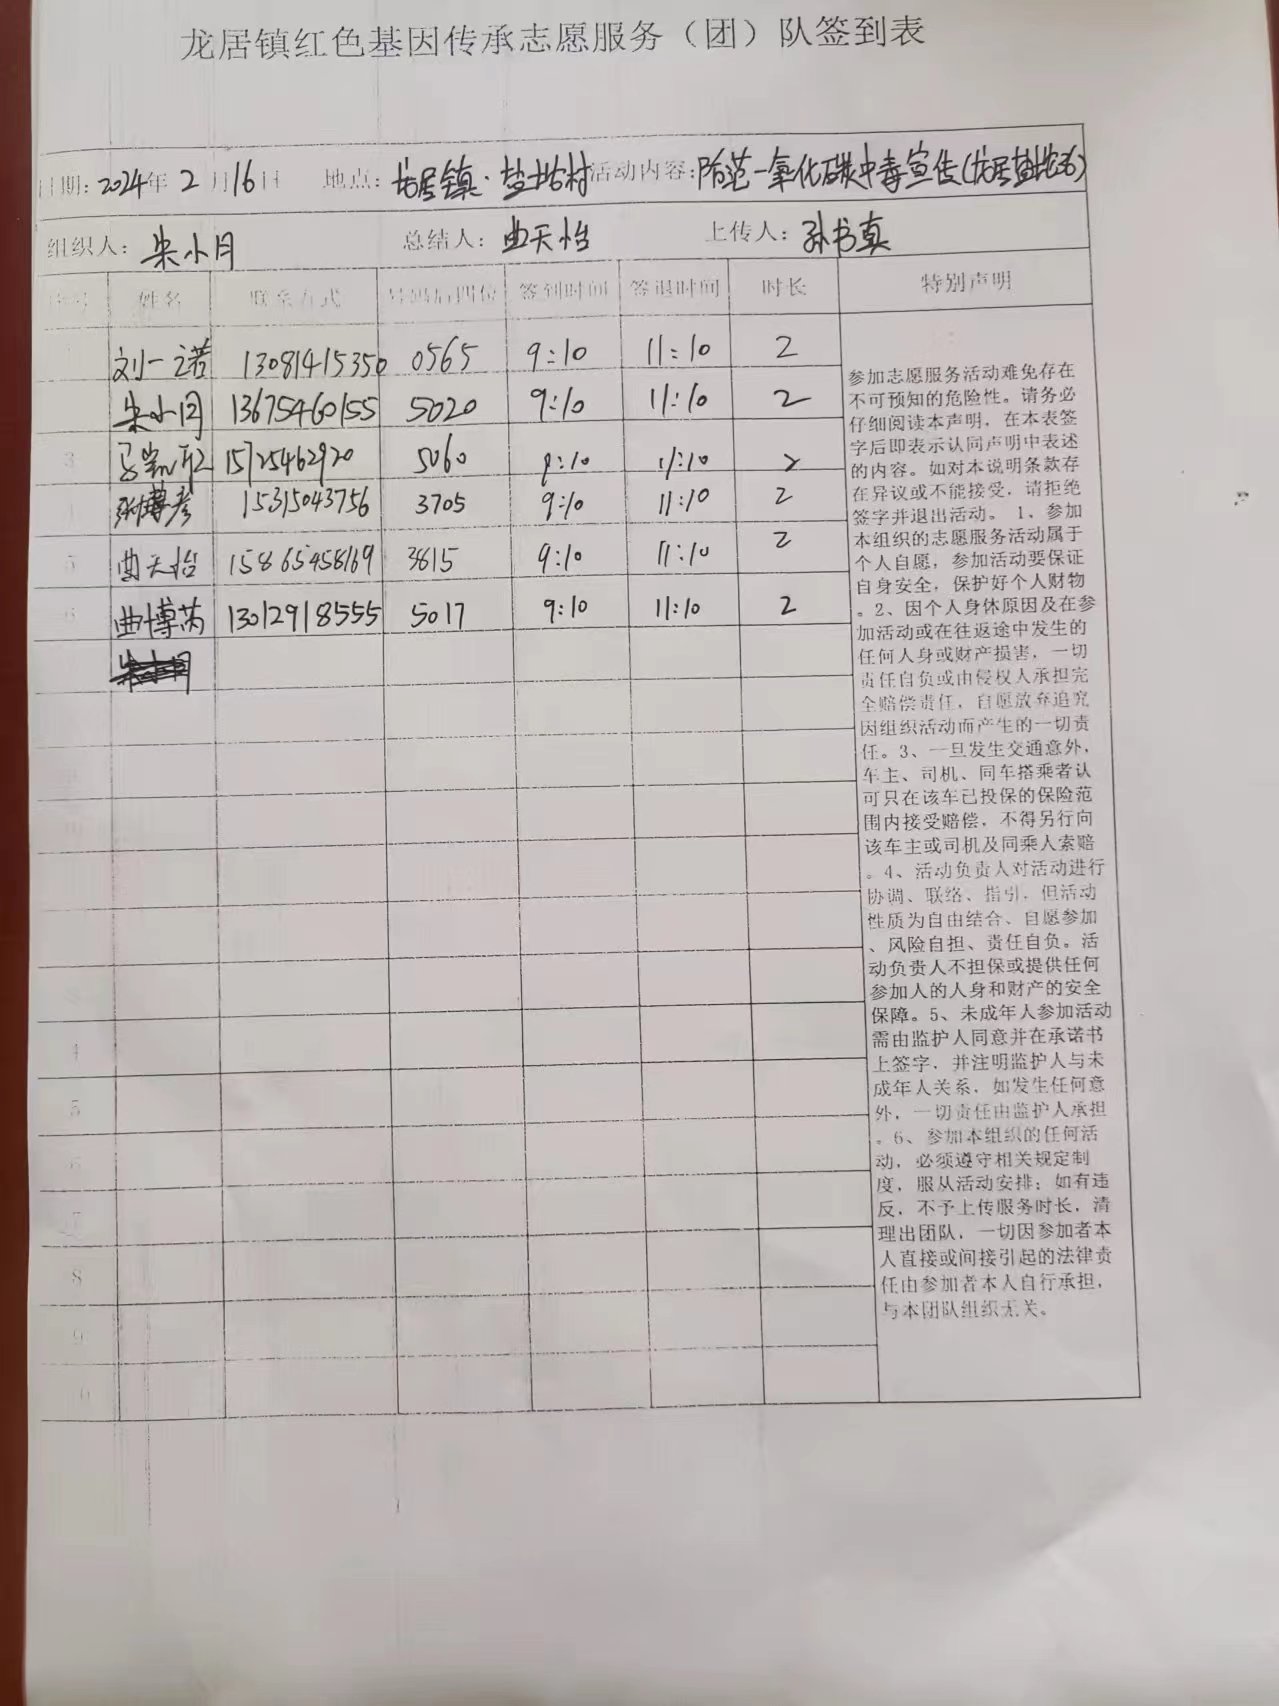 龙居镇红色基因传承志愿服务（团）队签到表
日期：2024年2月16日 地点：龙居镇·盐垛村 活动内容：防范一氧化碳中毒宣传（龙居盐垛站）
组织人：朱小月 总结人：曲天怡 上传人：孙书真
序号 姓名 联系方式 号码后四位 签到时间 签退时间 时长 特别声明
刘一诺 13081415350 0565 9:10 11:10 2
朱小月 13675460155 5020 9:10 11:10 2
3 15725462920 5060 9:10 11:10 2
4 张博彦 15315043756 3705 9:10 11:10 2
5 曲天怡 15865458169 3615 9:10 11:10 2
6 曲博芮 13012918555 5017 9:10 11:10 2
朱小月
3
4
5
6
7
8
9
0
参加志愿服务活动难免存在
不可预知的危险性。请务必
仔细阅读本声明，在本表签
字后即表示认同声明中表述
的内容。如对本说明条款存
在异议或不能接受，请拒绝
签字并退出活动。 1、参加
本组织的志愿服务活动属于
个人自愿，参加活动要保证
自身安全，保护好个人财物
。2、因个人身体原因及在参
加活动或在往返途中发生的
任何人身或财产损害，一切
责任自负或由侵权人承担完
全赔偿责任，自愿放弃追究
因组织活动而产生的一切责
任。3、一旦发生交通意外，
车主、司机、同车搭乘者认
可只在该车已投保的保险范
围内接受赔偿，不得另行向
该车主或司机及同乘人索赔
。4、活动负责人对活动进行
协调、联络、指引，但活动
性质为自由结合、自愿参加
、风险自担、责任自负。活
动负责人不担保或提供任何
参加人的人身和财产的安全
保障。5、未成年人参加活动
需由监护人同意并在承诺书
上签字，并注明监护人与未
成年人关系，如发生任何意
外，一切责任由监护人承担
。6、参加本组织的任何活
动，必须遵守相关规定制
度，服从活动安排；如有违
反，不予上传服务时长，清
理出团队，一切因参加者本
人直接或间接引起的法律责
任由参加者本人自行承担，
与本团队组织无关。